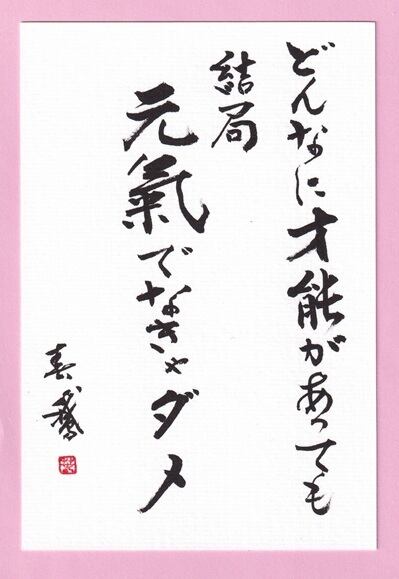 どんなに才能があっても
結局
元氣でなきゃダメ